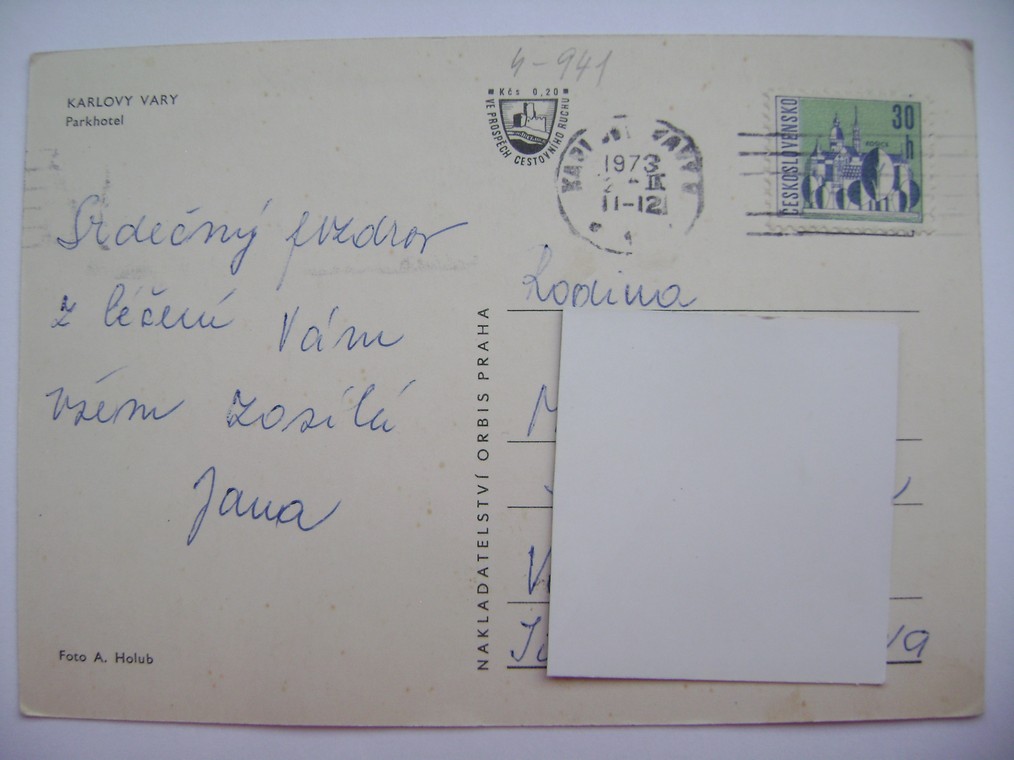 4-941
KARLOVY VARY
Parkhotel
Kčs 0,20
VE PROSPĚCH CESTOVNÍHO RUCHU
KARLOVY VARY
1973
11-12
ČESKOSLOVENSKO
30
h
Srdečný pozdrav
z léčení Vám
všem zasílá
Jana
Rodina
NAKLADATELSTVÍ ORBIS PRAHA
Foto A. Holub